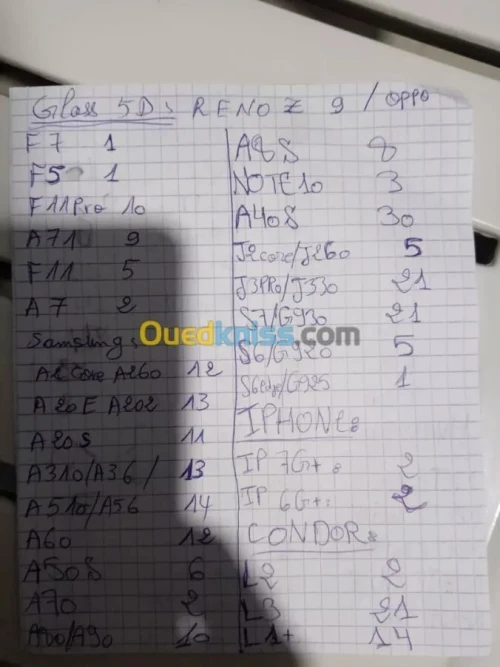 Glass 5D: RENO Z 9 / OPPO
F7 1
F5 1
F11Pro 10
A71 9
F11 5
A7 2
Samsung:
A2 Core A260 12
A20E A202 13
A20S 11
A310/A36/ 13
A510/A56 14
A60 12
A50S 6
A70 2
A80/A90 10
A8S 8
NOTE10 3
A40S 30
J2core/J260 5
J3PRO/J330 21
S7/G930 21
S6/G920 5
S6edge/G925 1
IPHONE:
IP 7G+: 2
IP 6G+: 2
CONDOR:
L2 2
L3 21
L1+ 14
Ouedkniss.com